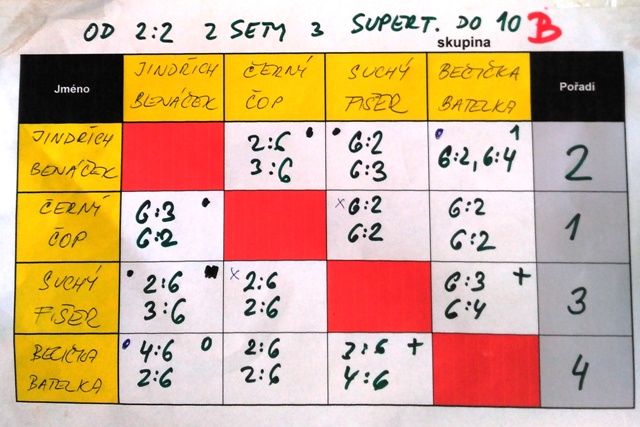 OD 2:2 2 SETY 3 SUPERT. DO 10 B
skupina
Jméno JINDŘICH BENÁČEK ČERNÝ ČOP SUCHÝ FIŠER BEČIČKA BATELKA Pořadí
JINDŘICH BENÁČEK 2:6 3:6 6:2 6:3 6:2, 6:4 1 2
ČERNÝ ČOP 6:3 6:2 x 6:2 6:2 6:2 6:2 1
SUCHÝ FIŠER 2:6 3:6 x 2:6 2:6 6:3 + 6:4 3
BEČIČKA BATELKA 4:6 0 2:6 2:6 2:6 3:6 + 4:6 4